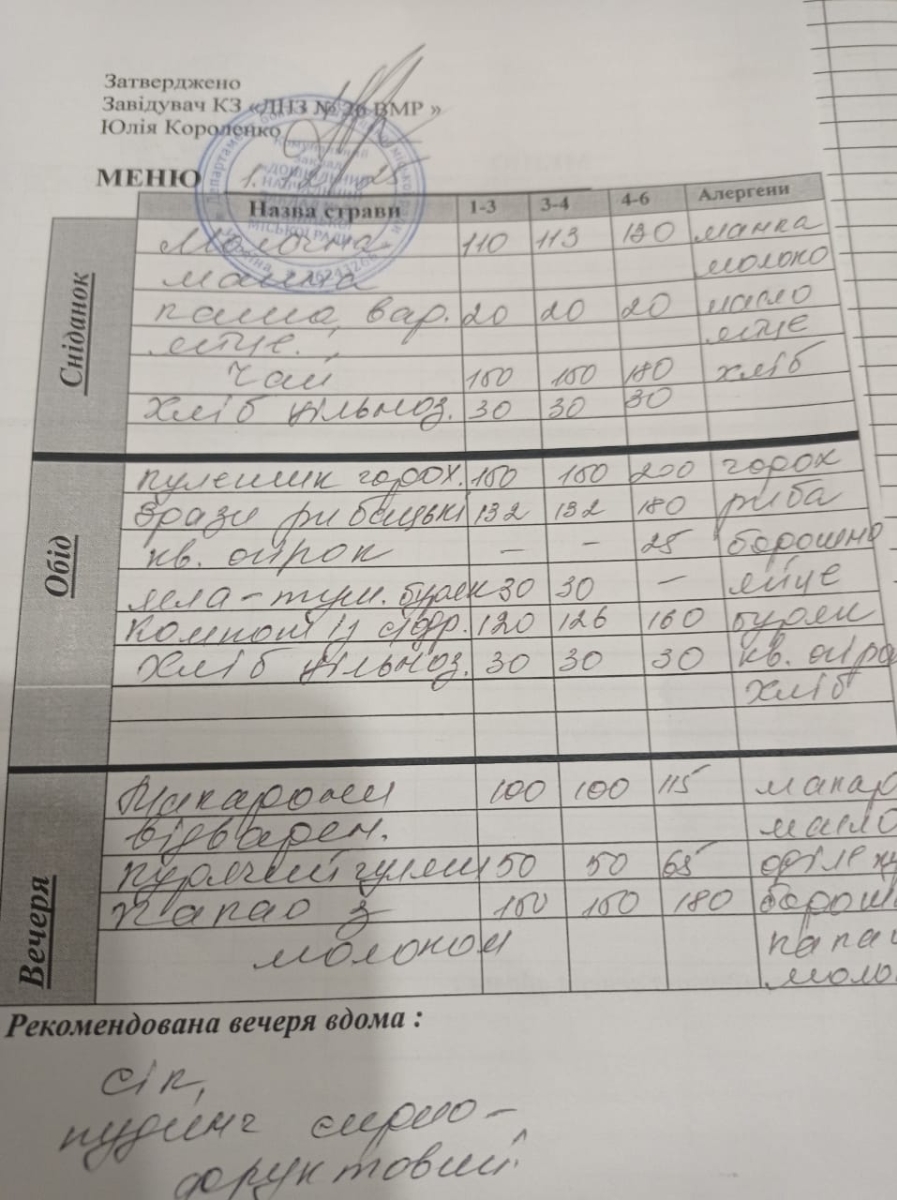 Затверджено
Завідувач КЗ «ДНЗ № 26 ВМР »
Юлія Короленко
МЕНЮ
Назва страви 1-3 3-4 4-6 Алергени
Сніданок
Молочна 110 113 130 манка
манна молоко
каша, вар. 20 20 20 масло
яйце. яйце
Чай 150 150 180 хліб
Хліб цільноз. 30 30 30
Обід
кулешик горох. 150 150 200 горох
Зрази рибацькі 132 132 180 риба
кв. огірок – – 25 борошно
ікла-туш. буряк 30 30 – яйце
Компот із сфр. 120 126 160 буряк
Хліб цільноз. 30 30 30 кв. огіро
хліб
Вечеря
Макарони 100 100 115 макар
відварен. масло
курячий гуляш 50 50 65
Какао з 150 150 180 борош
молоком какао
моло
Рекомендована вечеря вдома :
сік,
пудинг сирно-
фруктовий.